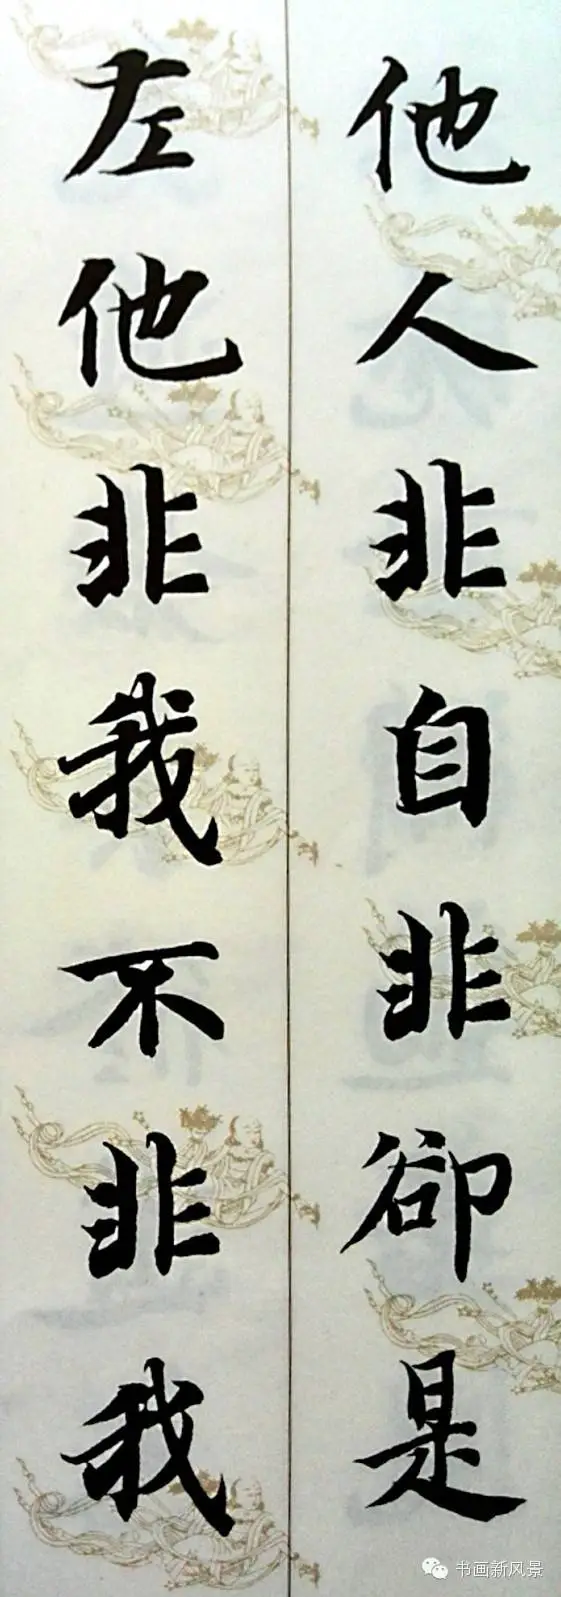 他人非自非卻是
左他非我不非我
书画新风景